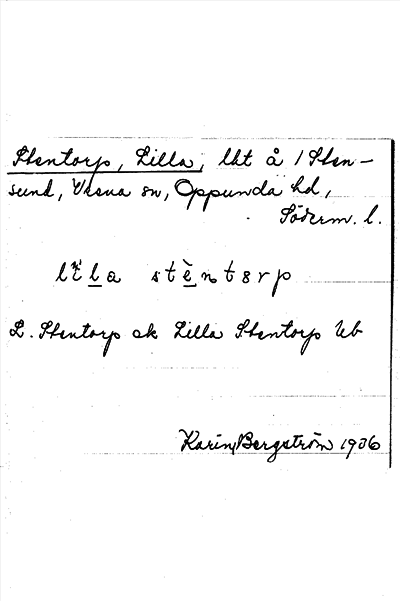 Stentorp, Lilla, lht å 1 Sten-
sund, Vrena sn, Oppunda hd,
Söderm. l.
lìla stèntorp
L. Stentorp ek Lilla Stentorp Ub
Karin Bergström 1936